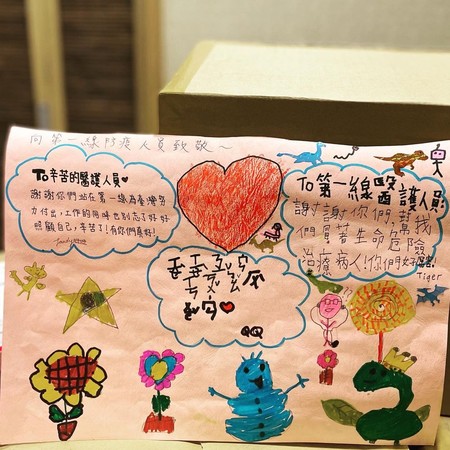 向第一線防疫人員致敬~
To辛苦的醫護人員♥
謝謝你們站在第一線為臺灣努
力付出,工作的同時也別忘了好好
照顧自己,辛苦了!有你們真好!
To第一線醫護人員
謝謝你們幫我
們冒著生命危險
治療病人!你們好
Tiger
QQ